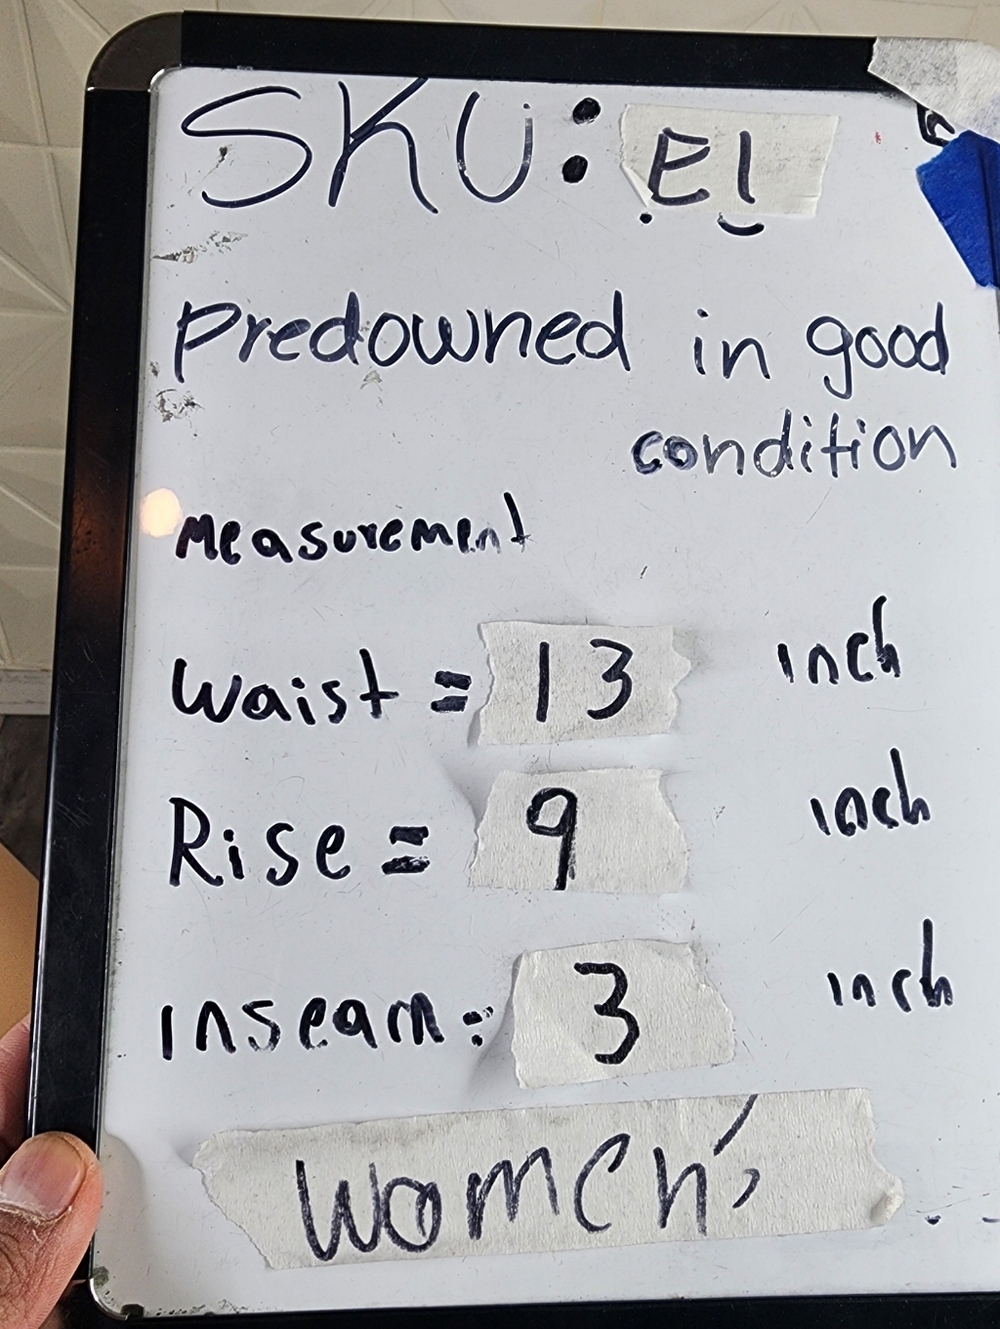 SKU: E1
Predowned in good
condition
Measurement
Waist = 13 inch
Rise = 9 inch
Inseam: 3 inch
Women's